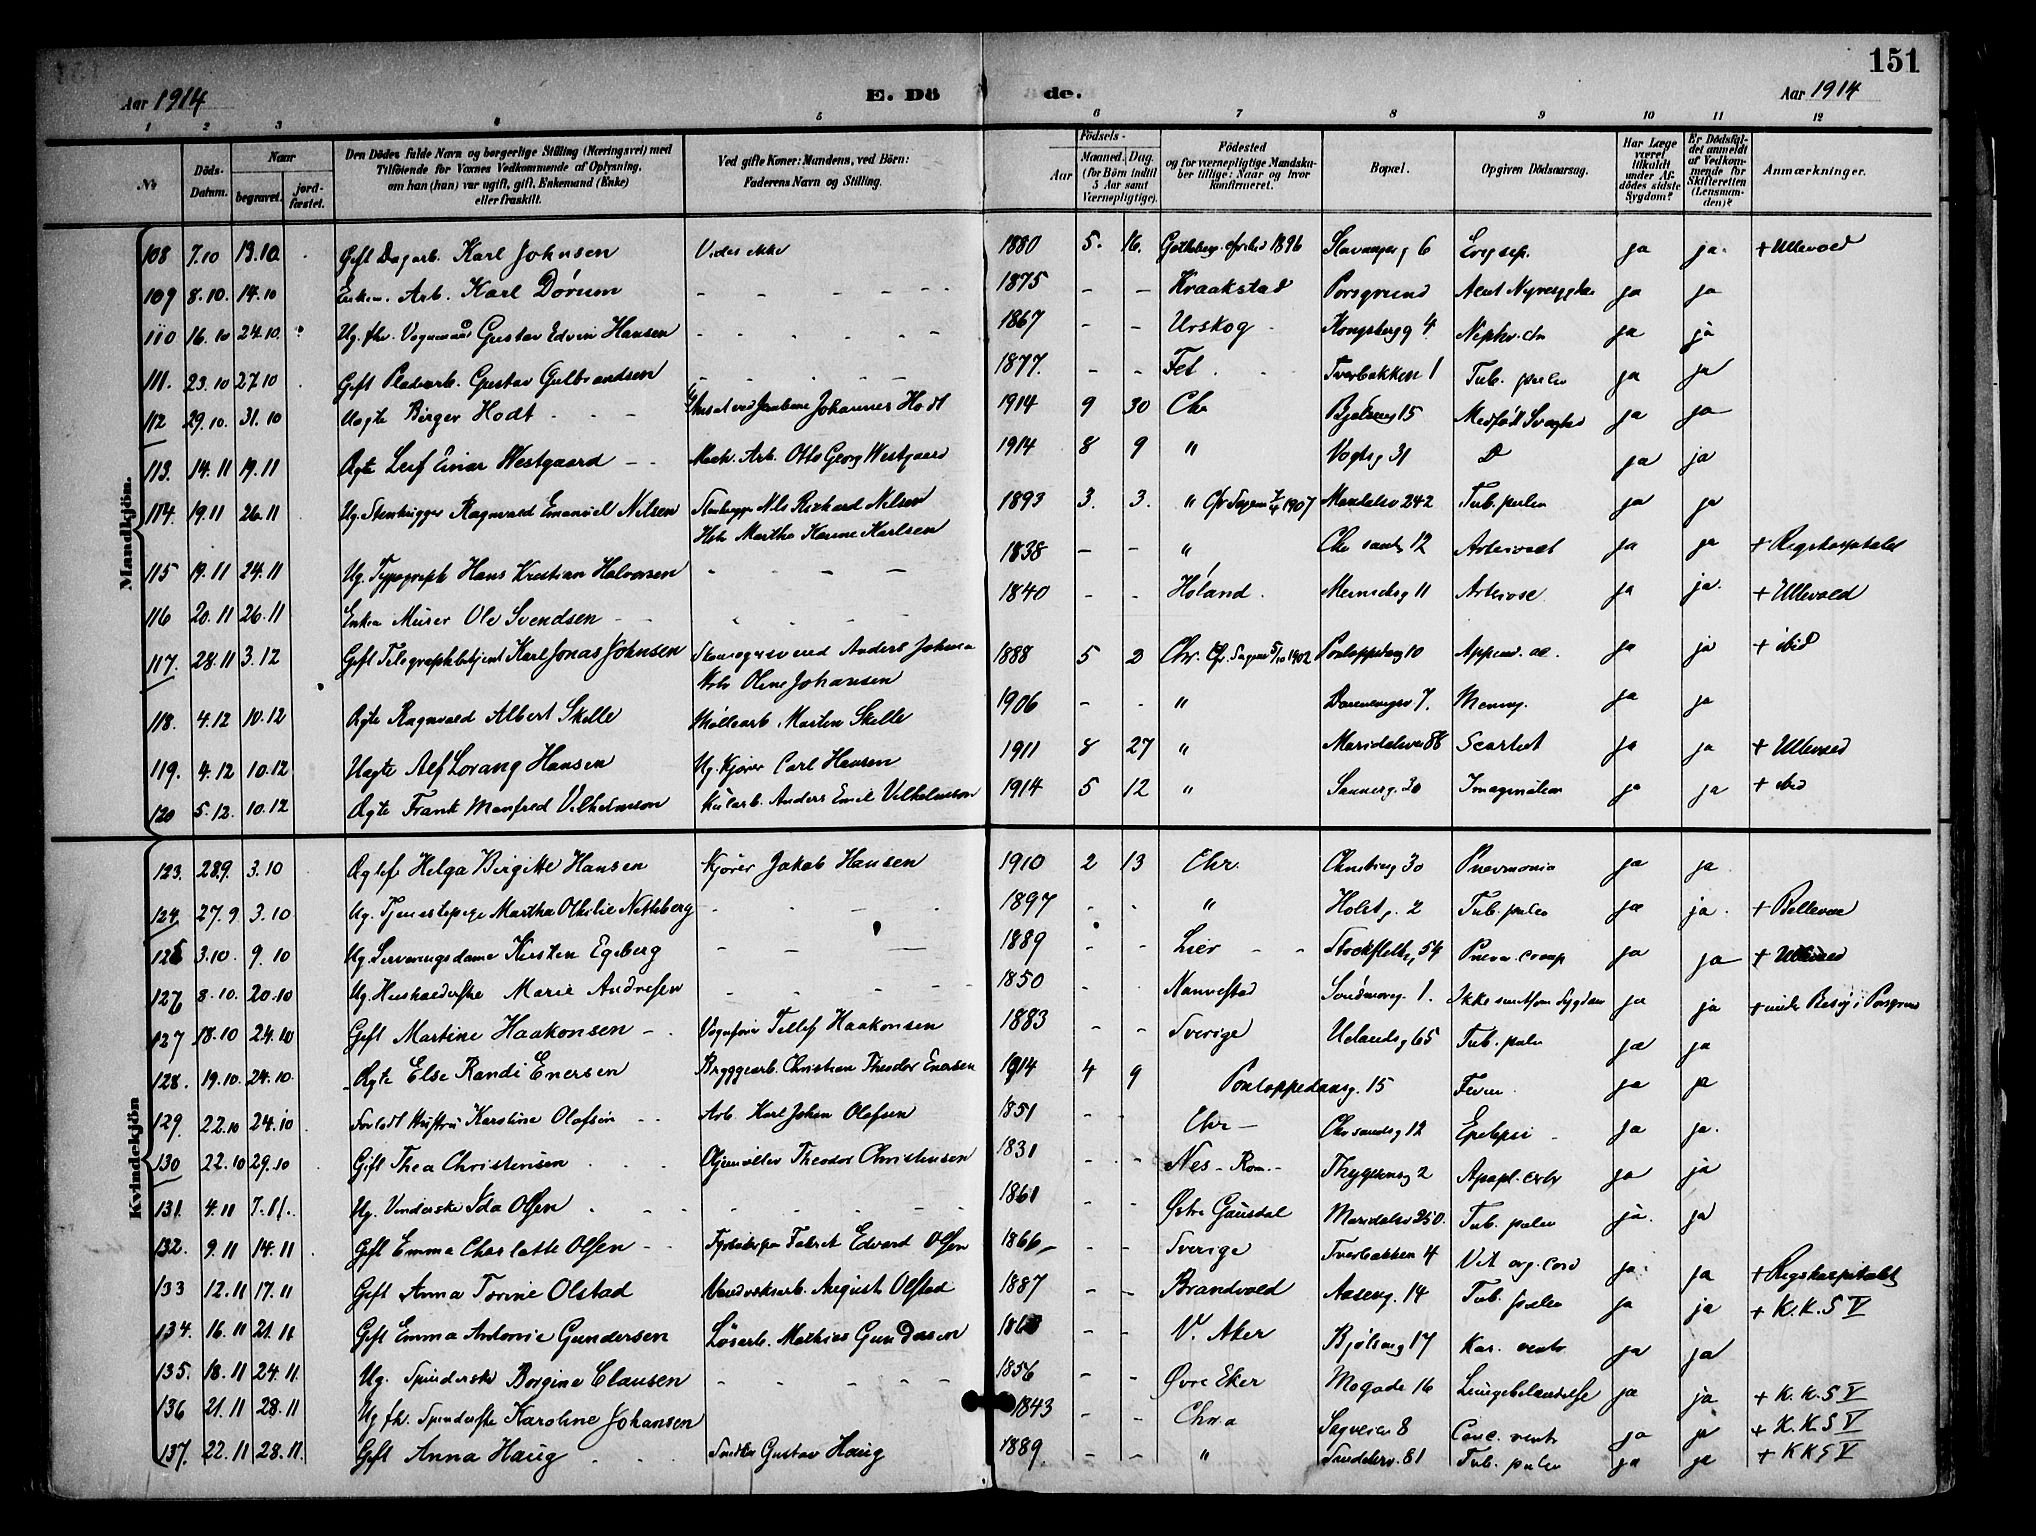 151
Aar 1914
E. Dö
de.
Aar 1914
1 2 3 4 5 6 7 8 9 10 11 12
Nr
Döds-Datum.
Naar
begravet.
jord-fæstet.
Den Dödes fulde Navn og borgerlige Stilling (Næringsvei) med
Tilföiende for Voxnes Vedkommende af Oplysning,
om han (hun) var ugift, gift, Enkemand (Enke)
eller fraskilt.
Ved gifte Koner: Mandens, ved Börn:
Faderens Navn og Stilling.
Födsels-
Aar
Maaned. Dag.
(for Börn indtil
5 Aar samt
Værnepligtige).
Födested
og for værnepligtige Mandska-
ber tillige: Naar og hvor
konfirmeret.
Bopæl.
Opgiven Dödsaarsag.
Har Læge
været
tilkaldt
under Af-
dödes sidste
Sygdom?
Er Dödsfal-
det anmeldt
af Vedkom-
mende for
Skifteretten
(Lensman-
den)?
Anmærkninger.
Mandkjön.
108 7.10 13.10 Gift Dagarb. Karl Johnsen Vides ikke 1880 5. 16. 1896 Stavangerg 6 Erysip. ja ja. + Ullevoed
109 8.10. 14.10 Enkem. Arb. Karl Dörum - - 1875 - - Kraakstad Porsgrund ja ja
110 16.10 24.10 Ug. fhv. Vognmand Gustav Edvin Hansen - - 1867 - - Urskog Kongsbergg 4. ja ja
111. 23.10 27.10 Gift Pladearb. Gustav Gulbrandsen - - 1877. - - Fet Tverbakken 1 Tub. pulm ja ja
112 29.10. 31.10 Uægte Birger Hodt Johannes Hodt 1914 9 30 Chr Bjølseng 15 Medfødt Svaghed ja ja
113. 14.11 19.11 Ægte Leif Einar Westgaard Mek. Arb. Otto Georg Westgaard 1914 8 9 " Vogtsg 31 D ja ja
114. 19.11 26.11 Ug. Stenhugger Ragnvald Emanuel Nilsen Stenhugger Nils Rikhard Nilsen 1893 3. 3. " 1907 Maridalsv 242 Tub. pulm ja ja
Hstr Martha Karine Karlsen
115 19.11 24.11 Ug. Typograph Hans Kristian Halvorsen - - 1838 - - " Chr sandsg 12 ja ja + Rigshospitalet
116 20.11 26.11 Enkem Murer Ole Svendsen - - 1840 - - Høland. 11 ja ja. + Ullevold
117. 28.11 3.12 Gift Telegraphbetjent Karl Jonas Johnsen Anders Johnsen 1888 5 2 Chr. 1902 10 Append. ac. ja ja + ibid
Hstr Oline Johansen
118. 4.12 10.12 Ægte Ragnvald Albert Skille Møllearb. Martin Skille 1906 - - " 7. Mening. ja ja
119. 4.12 10.12 Uægte Alf Lorang Hansen Ug. Kjører Carl Hansen 1911 8 27 " Maridalsvei 88 Scarlat ja ja + Ullevoed
120 5.12. 10.12 Ægte Frank Manfred Vilhelmsson Anders Emil Vilhelmsson 1914 5 12 " Sannerg. 30 ja ja + ibid
Kvindekjön
123. 28.9. 3.10 Ægtef Helga Birgitte Hansen Kjører Jakob Hansen 1910 2 13 Chr. 30 Pnevmonia ja ja
124. 27.9 3.10 Ug. Tjenestepige Martha Othilie Netteberg - - 1897 - - " Holstg. 2 Tub. pulm ja ja. +
125 3.10. 9.10 Ug. Serveringsdame Kirsten Egeberg - - 1889 - - Lier - - Stockfleths, 54 Pnevm. croup ja ja + Ullevoed
126 8.10. 20.10 Ug. Husholderske Marie Andresen - - 1850 - - Nannestad Søndmørg. 1. Ikke smitsom Sygdom ja ja + under Besøg i Porsgrun
127 18.10 24.10 Gift Martine Haakonsen Tellef Haakonsen 1883 - - Sverige Uelandsg 65 Tub. pulm ja ja
128. 19.10. 24.10. Ægte Else Randi Enersen Bryggearb. Christian Theodor Enersen 1914 4 9 Pontoppedansg. 15 ja ja
129. 22.10 24.10 Forladt Hustru Karoline Olafsen Arb. Karl Johan Olafsen 1851 - - Chr - Chr sandsg 12 Epelepsi ja ja.
130 22.10 29.10 Gift Thea Christensen Theodor Christensen 1831 - - Nes - Rom.- Thygesensg 2 Apopl. cerebr ja ja
131. 4.11 7.11. Ug. Vinderske Ida Olsen - - 1861 - - Østre Gausdal Maridalsv 250. Tub. pulm ja. ja
132. 9.11 14.11 Gift Emma Charlotte Olsen Edvard Olsen 1866, - - Sverige Tverbakken 4 Vit. org. cord ja ja + Rigshospitalet
133 12.11 17.11 Gift Anna Torine Olstad August Olstad 1887 - - Brandvold Aaseng. 14 Tub. pulm ja ja + K.K.S V
134. 16.11 21.11 Gift Emma Antonie Gundersen Løsarb. Mathias Gundersen - - V. Aker Bjølseng 17 Kar. ventr ja ja
135. 18.11 24.11. Ug. Spinderske Borgine Clausen - - 1856 - - Øvre Eker Mogade 16 Lungebetændelse ja ja + K.K.S V
136 21.11 28.11 Ug fh. Spinderske Karoline Johansen 1843 - - Chr.a Sagveien 8 Canc. ventr ja ja + K.K.S V
137. 22.11 28.11. Gift Anna Haug Snedker Gustav Haug 1889. - - " 81 Tub. pulm ja ja + KKS V